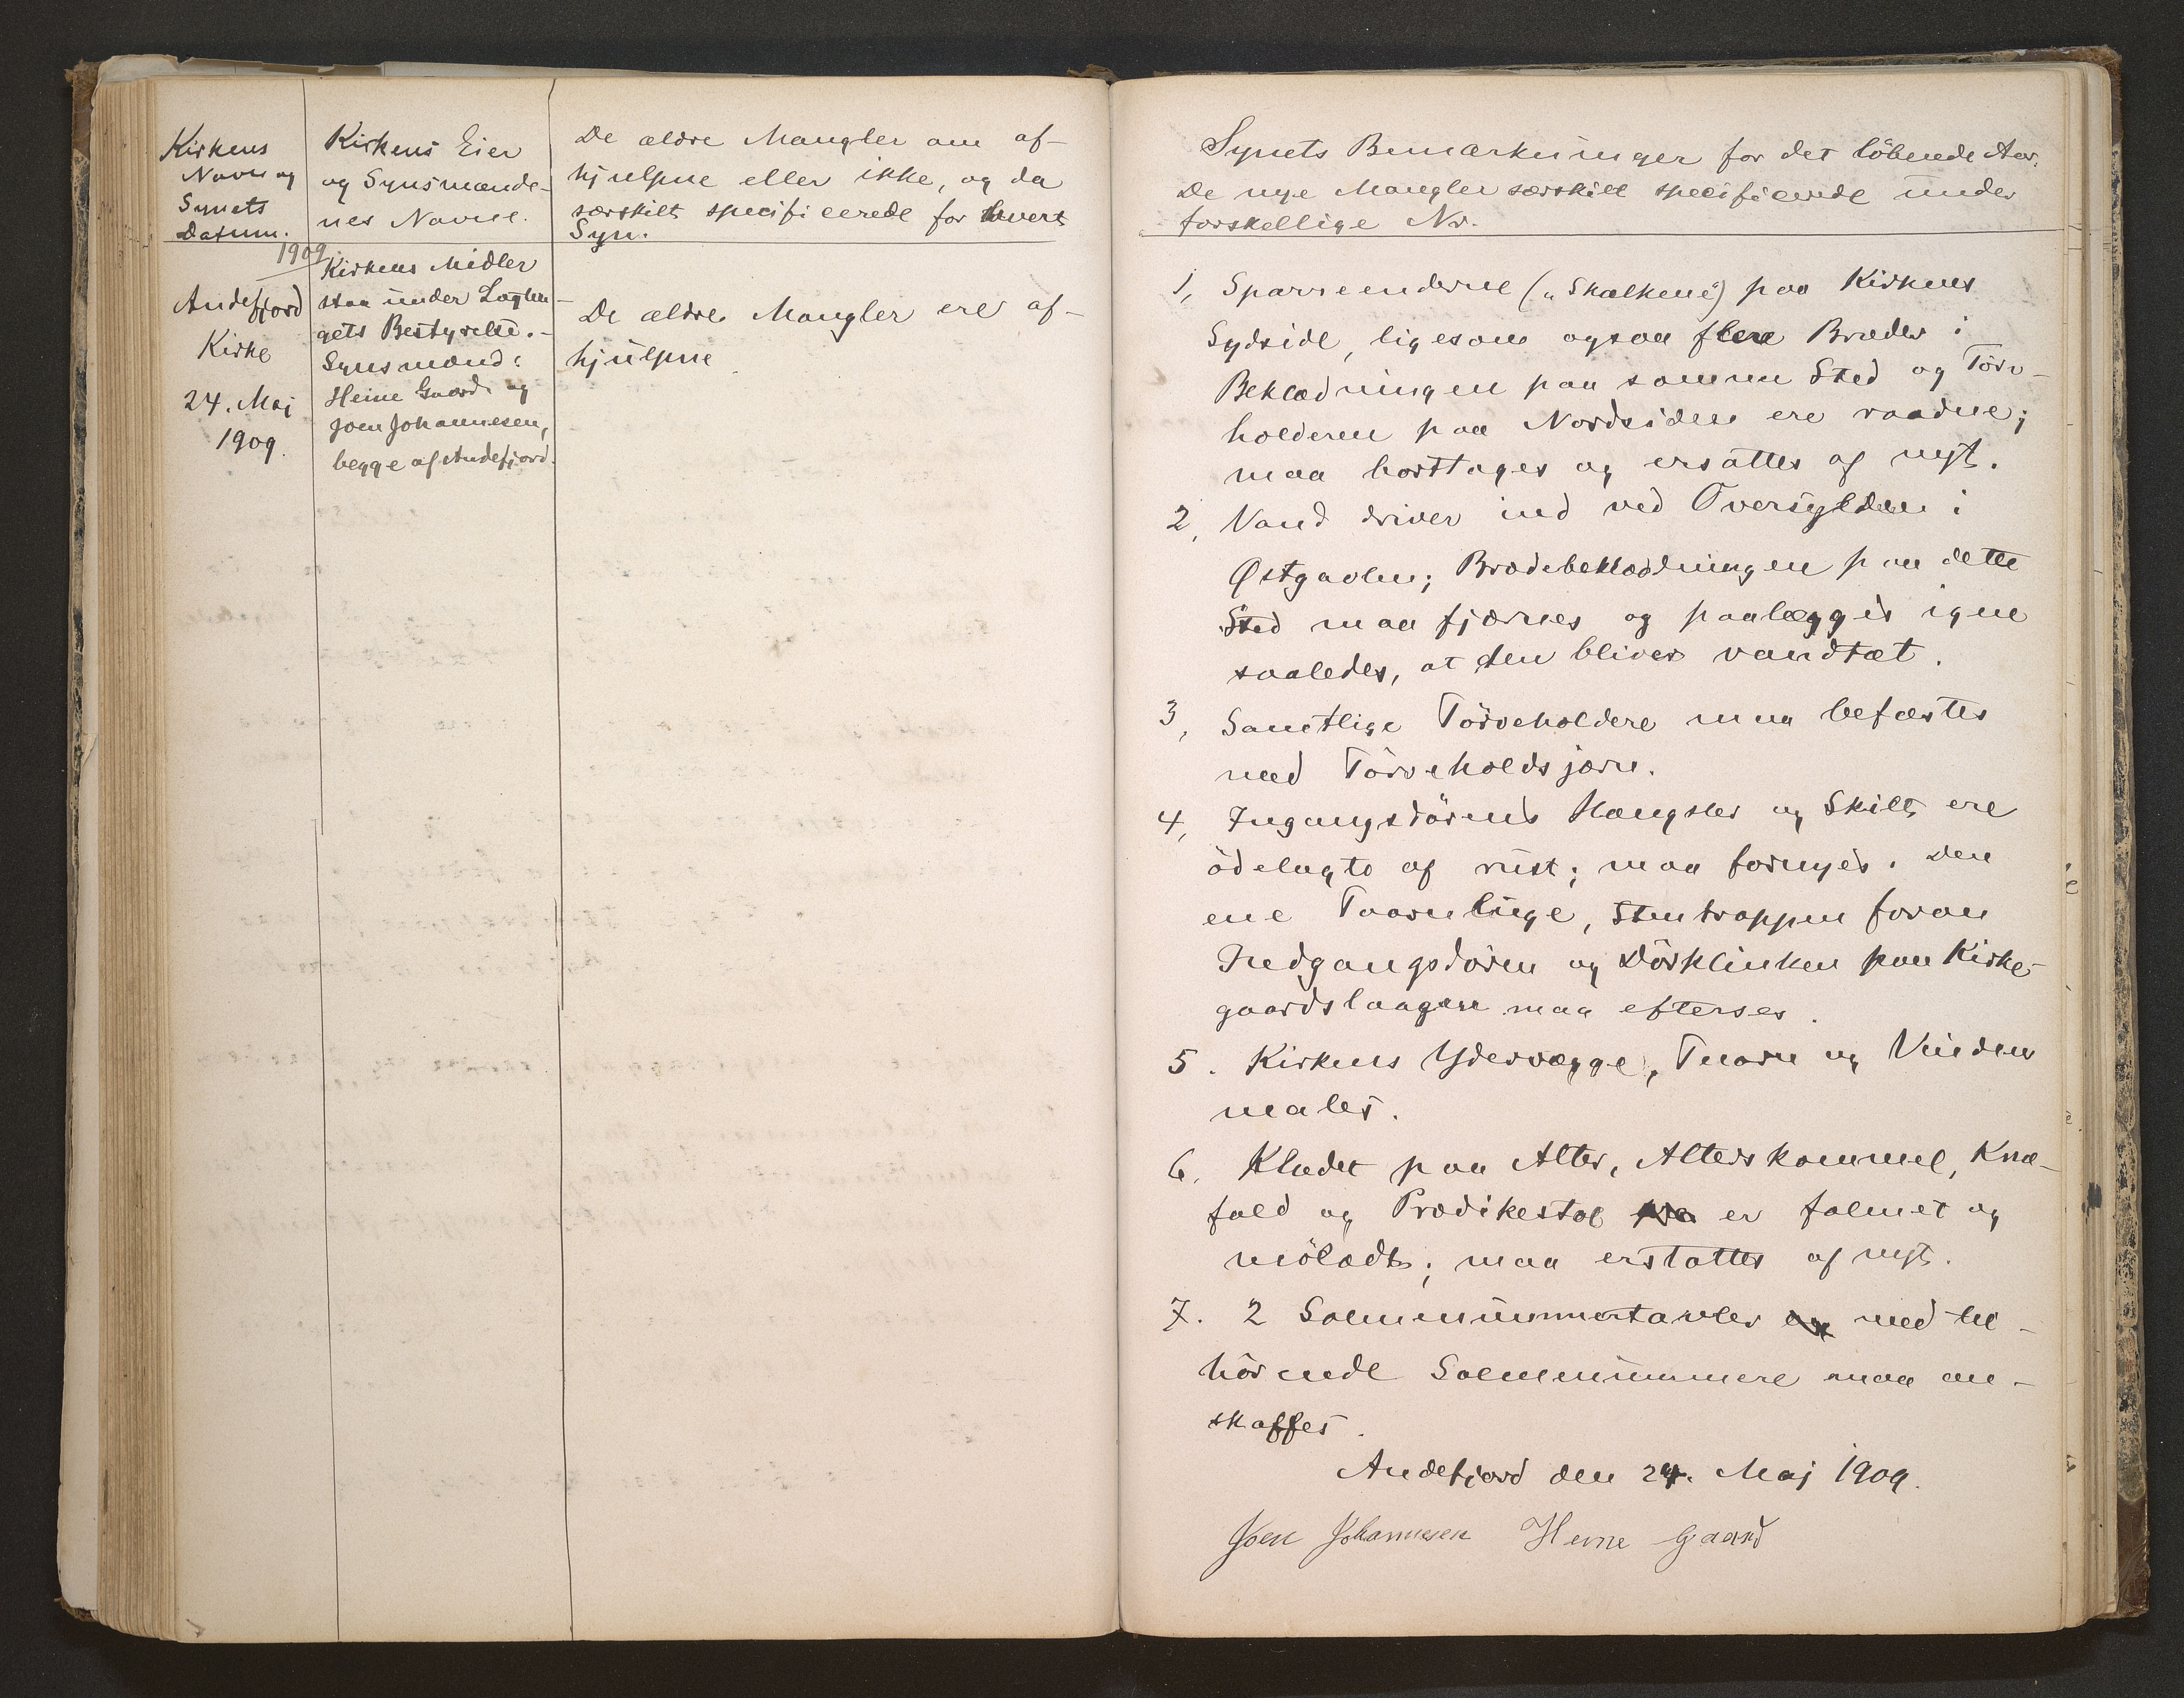 Kirkens
Navn og
Synets
Datum.
Kirkens Eier
og Synsmænde-
nes Navne.
De ældre Mangler om af-
hjulpne eller ikke, og da
særskilt specificerede for hvert
Syn.
1909
Andefjord
Kirke
24. Maj
1909.
Kirkens Midler
staa under Lagthin-
gets Bestyrelse.-
Synsmænd:
Heine Gaard og
Joen Johannesen,
begge af Andefjord.
De ældre Mangler ere af-
hjulpne
Synets Bemærkninger for det löbende Aar.
De nye Mangler særskilt specificerede under
forskellige Nr.
1, Sparreenderne („Skalkene") paa Kirkens
Sydside, ligesom ogsaa flere Bræder i
Beklædningen paa samme Sted og Törv-
holderen paa Nordsiden ere raadne;
maa borttages og ersättes af nyt.
2, Vand driver ind ved Oversylden i
Østgavlen; Brædebeklædningen paa dette
Sted maa fjærnes og paalægges igen
saaledes, at den bliver vandtæt.
3, Samtlige Törveholdere maa befæstes
med Törveholdsjærn.
4, Ingangsdörens Hængsler og Skilt ere
ödelagte af rust; maa fornyes. Den
ene Taarnluge, Stentrappen foran
Indgangsdören og Dörklinken paa Kirke-
gaardslaagen maa efterses.
5. Kirkens Ydervægge, Taarn og Vinduer
males.
6, Klædet paa Alter, Alterskammel, Knæ-
fald og Prædikestol er falmet og
mölædt; maa erstattes af nyt.
7. 2 Salmenummertavler med til-
hörende Salmenummere maa an-
skaffes.
Andefjord den 24. Maj 1909.
Joen Johannesen Heine Gaard